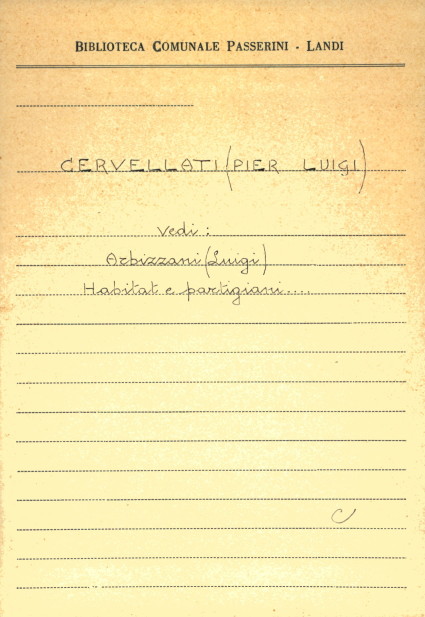 BIBLIOTECA COMUNALE PASSERINI - LANDI
CERVELLATI (PIER LUIGI)
Vedi :
Arbizzani (Luigi)
Habitat e partigiani....
C